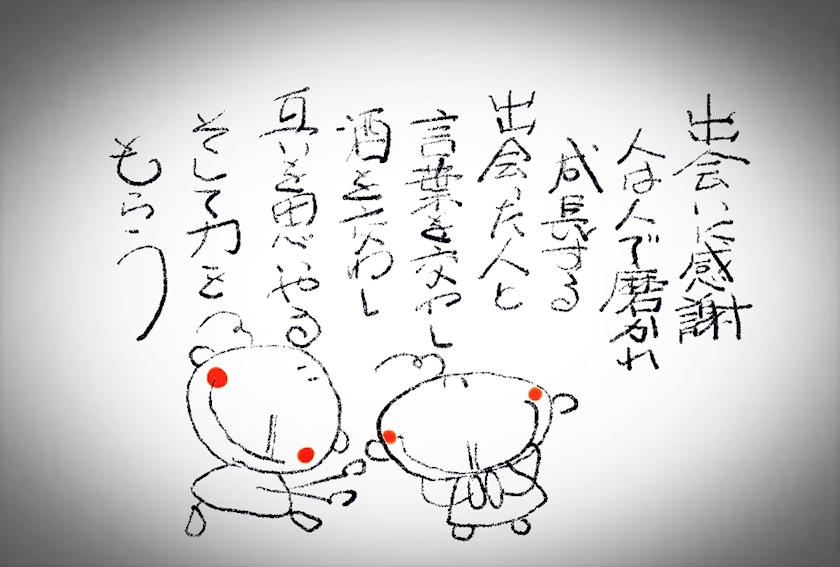 出会いに感謝
人は人で磨かれ
成長する
出会った人と
言葉を交わし
酒を交わし
互いを思いやる
そして力を
もらう